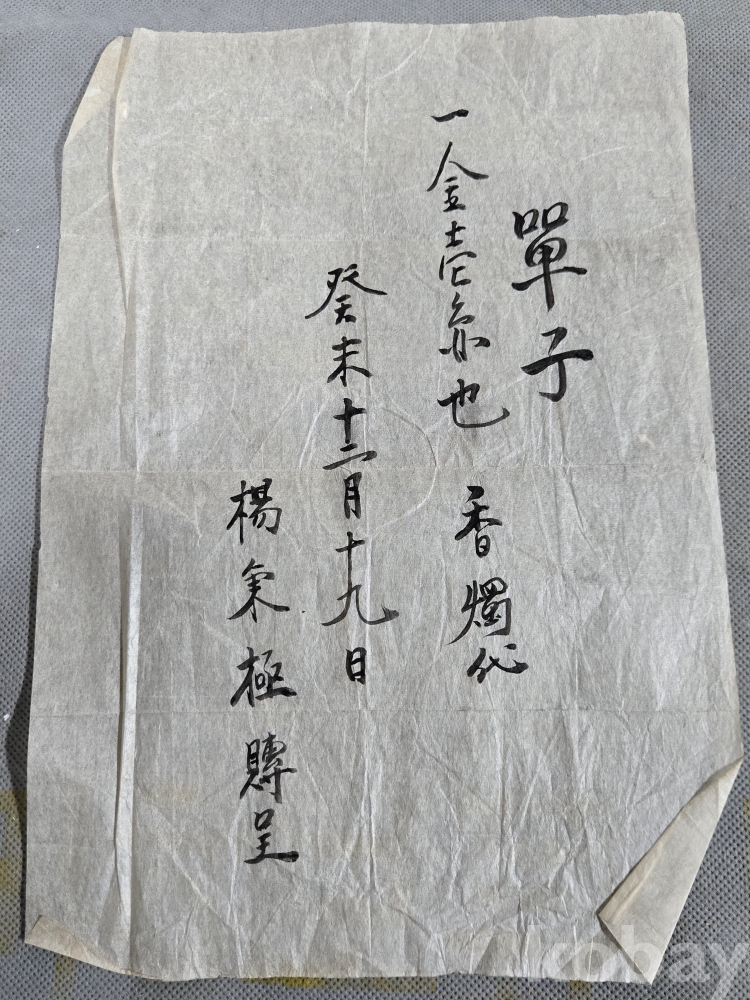 單子
一金壹也 香燭代
癸未十二月十九日
楊極賻呈
kobay